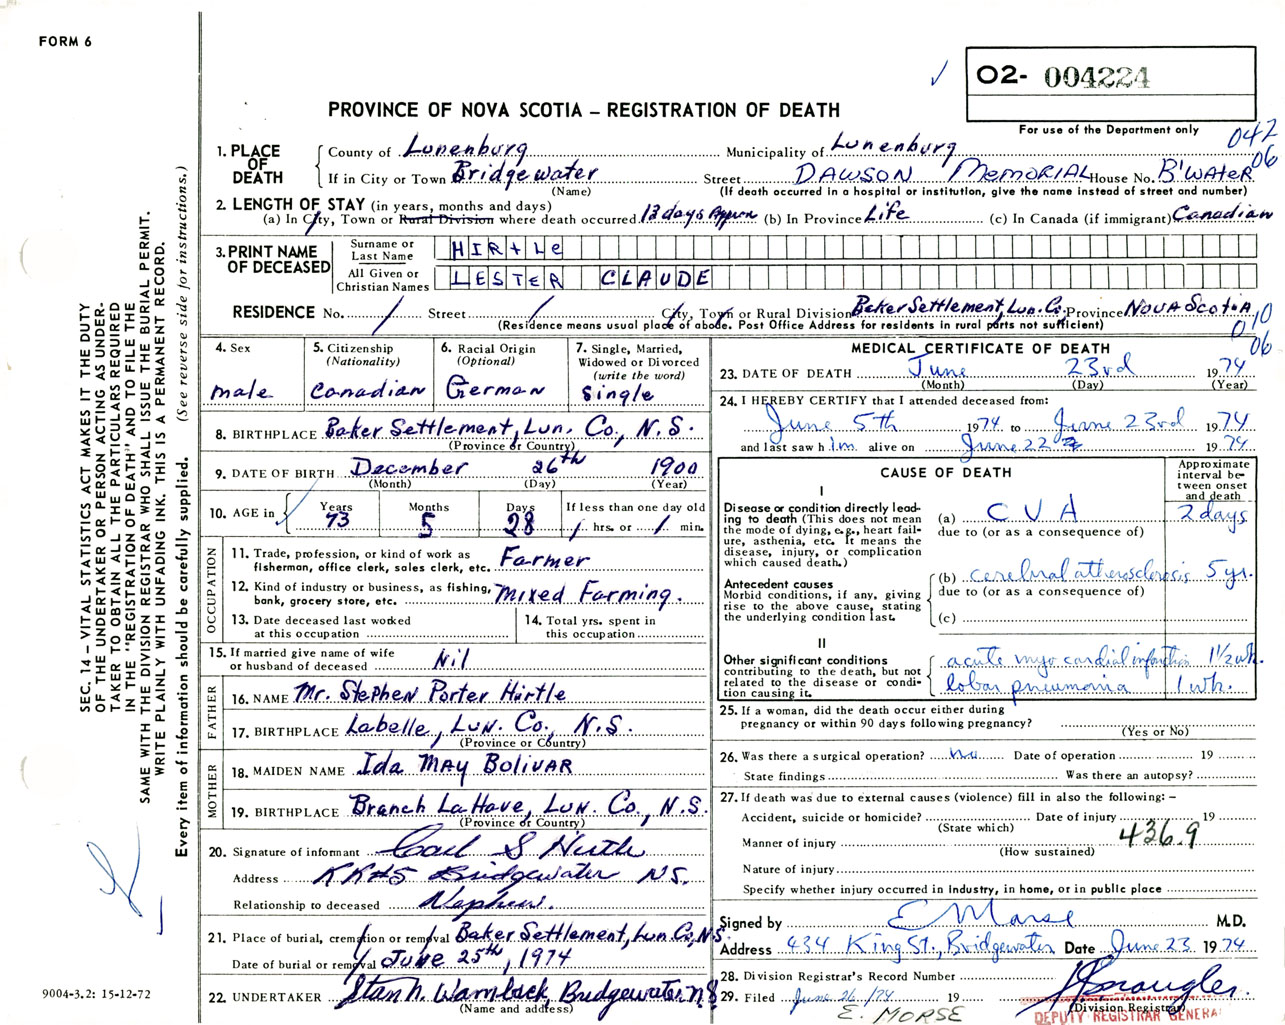 FORM 6
O2- 004224
PROVINCE OF NOVA SCOTIA – REGISTRATION OF DEATH
For use of the Department only
042
06
1. PLACE OF DEATH
County of Lunenburg Municipality of Lunenburg
If in City or Town Bridgewater Street DAWSON MEMORIAL House No. B'WATER
(Name) (If death occurred in a hospital or institution, give the name instead of street and number)
2. LENGTH OF STAY (in years, months and days)
(a) In City, Town or Rural Division where death occurred 12 days Approx (b) In Province Life (c) In Canada (if immigrant) Canadian
3. PRINT NAME OF DECEASED
Surname or Last Name HIRtLe
All Given or Christian Names LESTER CLAUDE
RESIDENCE No. / Street / City, Town or Rural Division Baker Settlement, Lun. Co. Province NOVA SCOTIA
(Residence means usual place of abode. Post Office Address for residents in rural parts not sufficient)
010
06
4. Sex
male
5. Citizenship
(Nationality)
Canadian
6. Racial Origin
(Optional)
German
7. Single, Married,
Widowed or Divorced
(write the word)
Single
8. BIRTHPLACE Baker Settlement, Lun. Co., N.S.
(Province or Country)
9. DATE OF BIRTH December 26th 1900
(Month) (Day) (Year)
10. AGE in
Years Months Days If less than one day old
73 5 28 / hrs. or / min.
OCCUPATION
11. Trade, profession, or kind of work as
fisherman, office clerk, sales clerk, etc. Farmer
12. Kind of industry or business, as fishing,
bank, grocery store, etc. Mixed Farming.
13. Date deceased last worked
at this occupation
14. Total yrs. spent in
this occupation
15. If married give name of wife
or husband of deceased Nil
FATHER
16. NAME Mr. Stephen Porter Hirtle
17. BIRTHPLACE Labelle, Lun. Co., N.S.
(Province or Country)
MOTHER
18. MAIDEN NAME Ida MAY BOLIVAR
19. BIRTHPLACE Branch LaHave, Lun. Co., N.S.
(Province or Country)
20. Signature of informant Carl S Hirtle
Address RR#5 Bridgewater NS.
Relationship to deceased Nephew.
21. Place of burial, cremation or removal Baker Settlement, Lun. Co, N.S.
Date of burial or removal June 25th, 1974
22. UNDERTAKER Stan N. Warnback, Bridgewater N.S.
(Name and address)
MEDICAL CERTIFICATE OF DEATH
23. DATE OF DEATH June 23rd 1974
(Month) (Day) (Year)
24. I HEREBY CERTIFY that I attended deceased from:
June 5th 1974 to June 23rd 1974
and last saw h im alive on June 22 1974
CAUSE OF DEATH
Approximate
interval be-
tween onset
and death
I
Disease or condition directly lead-
ing to death (This does not mean
the mode of dying, e.g., heart fail-
ure, asthenia, etc. It means the
disease, injury, or complication
which caused death.)
(a) C V A 2 days
due to (or as a consequence of)
Antecedent causes
Morbid conditions, if any, giving
rise to the above cause, stating
the underlying condition last.
(b) cerebral atherosclerosis 5 yr.
due to (or as a consequence of)
(c)
II
Other significant conditions
contributing to the death, but not
related to the disease or condi-
tion causing it.
acute myocardial infarction 1 1/2 wk.
lobar pneumonia 1 wk.
25. If a woman, did the death occur either during
pregnancy or within 90 days following pregnancy?
(Yes or No)
26. Was there a surgical operation? no Date of operation 19
State findings Was there an autopsy?
27. If death was due to external causes (violence) fill in also the following: –
Accident, suicide or homicide? Date of injury 19
(State which)
436.9
Manner of injury
(How sustained)
Nature of injury
Specify whether injury occurred in industry, in home, or in public place
Signed by E Morse M.D.
Address 434 King St., Bridgewater Date June 23 1974
28. Division Registrar's Record Number
29. Filed June 26/74 19
(Division Registrar)
E. MORSE
DEPUTY REGISTRAR GENERAL
SEC. 14 – VITAL STATISTICS ACT MAKES IT THE DUTY
OF THE UNDERTAKER OR PERSON ACTING AS UNDER-
TAKER TO OBTAIN ALL THE PARTICULARS REQUIRED
IN THE "REGISTRATION OF DEATH" AND TO FILE THE
SAME WITH THE DIVISION REGISTRAR WHO SHALL ISSUE THE BURIAL PERMIT.
WRITE PLAINLY WITH UNFADING INK. THIS IS A PERMANENT RECORD.
Every item of information should be carefully supplied. (See reverse side for instructions.)
9004-3.2: 15-12-72